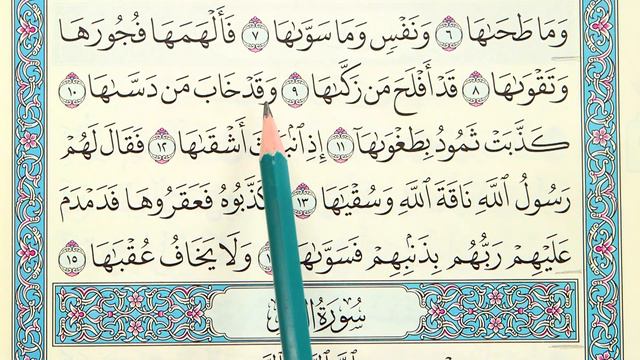 وَمَا طَحَىٰهَا ٦ وَنَفْسٍ وَمَا سَوَّىٰهَا ٧ فَأَلْهَمَهَا فُجُورَهَا
وَتَقْوَىٰهَا ٨ قَدْ أَفْلَحَ مَن زَكَّىٰهَا ٩ وَقَدْ خَابَ مَن دَسَّىٰهَا ١٠
كَذَّبَتْ ثَمُودُ بِطَغْوَىٰهَآ ١١ إِذِ أَشْقَىٰهَا ١٢ فَقَالَ لَهُمْ
رَسُولُ ٱللَّهِ نَاقَةَ ٱللَّهِ وَسُقْيَٰهَا ١٣ فَعَقَرُوهَا فَدَمْدَمَ
عَلَيْهِمْ رَبُّهُم بِذَنۢبِهِمْ فَسَوَّىٰهَا وَلَا يَخَافُ عُقْبَٰهَا ١٥
سُورَةُ